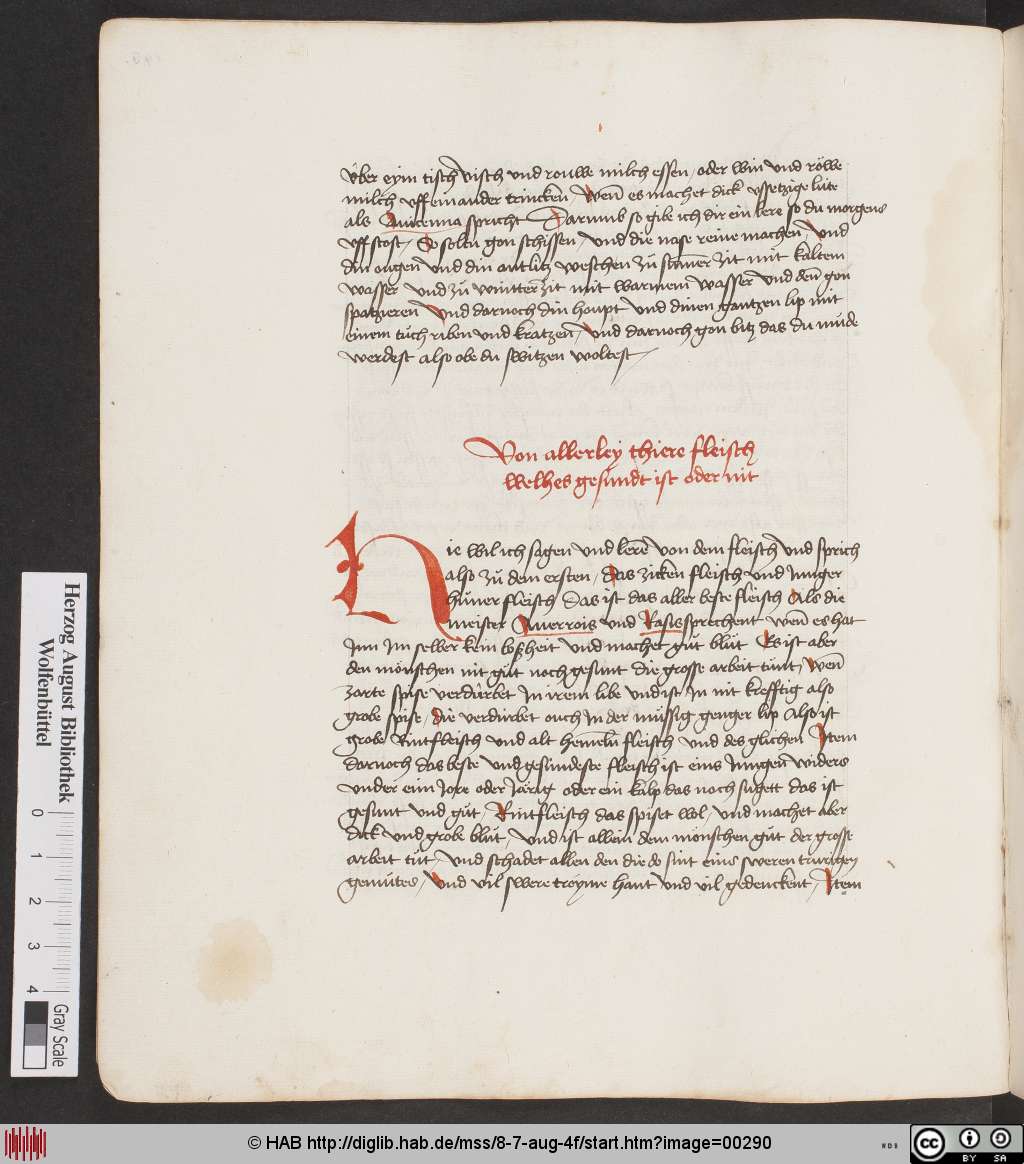 Vber eym tisch visch vnd rouwe milch essen / oder win vnd röwe
milch vff einander trincken / Wenn es machet dick vssetzige lúte
als Auicenna spricht Darumb so gibe ich dir ein lere so du morgens
vff stost / So soltu gon schissen / vnd die nase reine machen / vnd
din ougen vnd din antlitz weschen zú summer zit mit kaltem
wasser vnd zú wintter zit mit warmem wasser vnd den gon
spatzieren Vnd darnoch din houpt vnd dinen gantzen lip mit
einem túch riben vnd kratzen / Vnd darnoch gon bitz das du múde
werdest also obe du switzen woltest /
Von allerley thiere fleisch
welhes gesundt ist oder nit
Hie wil ich sagen vnd leren von dem fleisch vnd sprich
also zú dem ersten / das zicken fleisch vnd Junger
húner fleisch das ist das aller beste fleisch Als die
meister Auerrois vnd Rasis sprechent wenn es hat
Jnn Jm selber kein boßheit vnd machet gút blút Es ist aber
den mönschen nit gút noch gesunt die grosse arbeit túnt / Wen
zarte spise verdúrbet Jn irem libe vnd ist Jn nit krefftig also
grobe spise / die verdúrbet ouch Jn der mússig genger lip Also ist
grobe Rintfleisch vnd alt hemeln fleisch vnd des glichen Jtem
darnoch das beste vnd gesundeste fleisch ist eins Jungen widers
vnder eim Jore oder Járig oder ein kalp das noch suget das ist
gesunt vnd gút / Rintfleisch das spiset wol / vnd machet aber
dick vnd grobe blút / vnd ist allein dem mönschen gút der grosse
arbeit tút / vnd schadet allen den die do sint eins sweren trurigen
gemútes / Vnd vil swere tröyme hant vnd vil gedenckent / Jtem
Herzog August Bibliothek
Wolfenbüttel
0 1 2 3 4
Gray Scale
© HAB http://diglib.hab.de/mss/8-7-aug-4f/start.htm?image=00290
WDB
cc BY SA